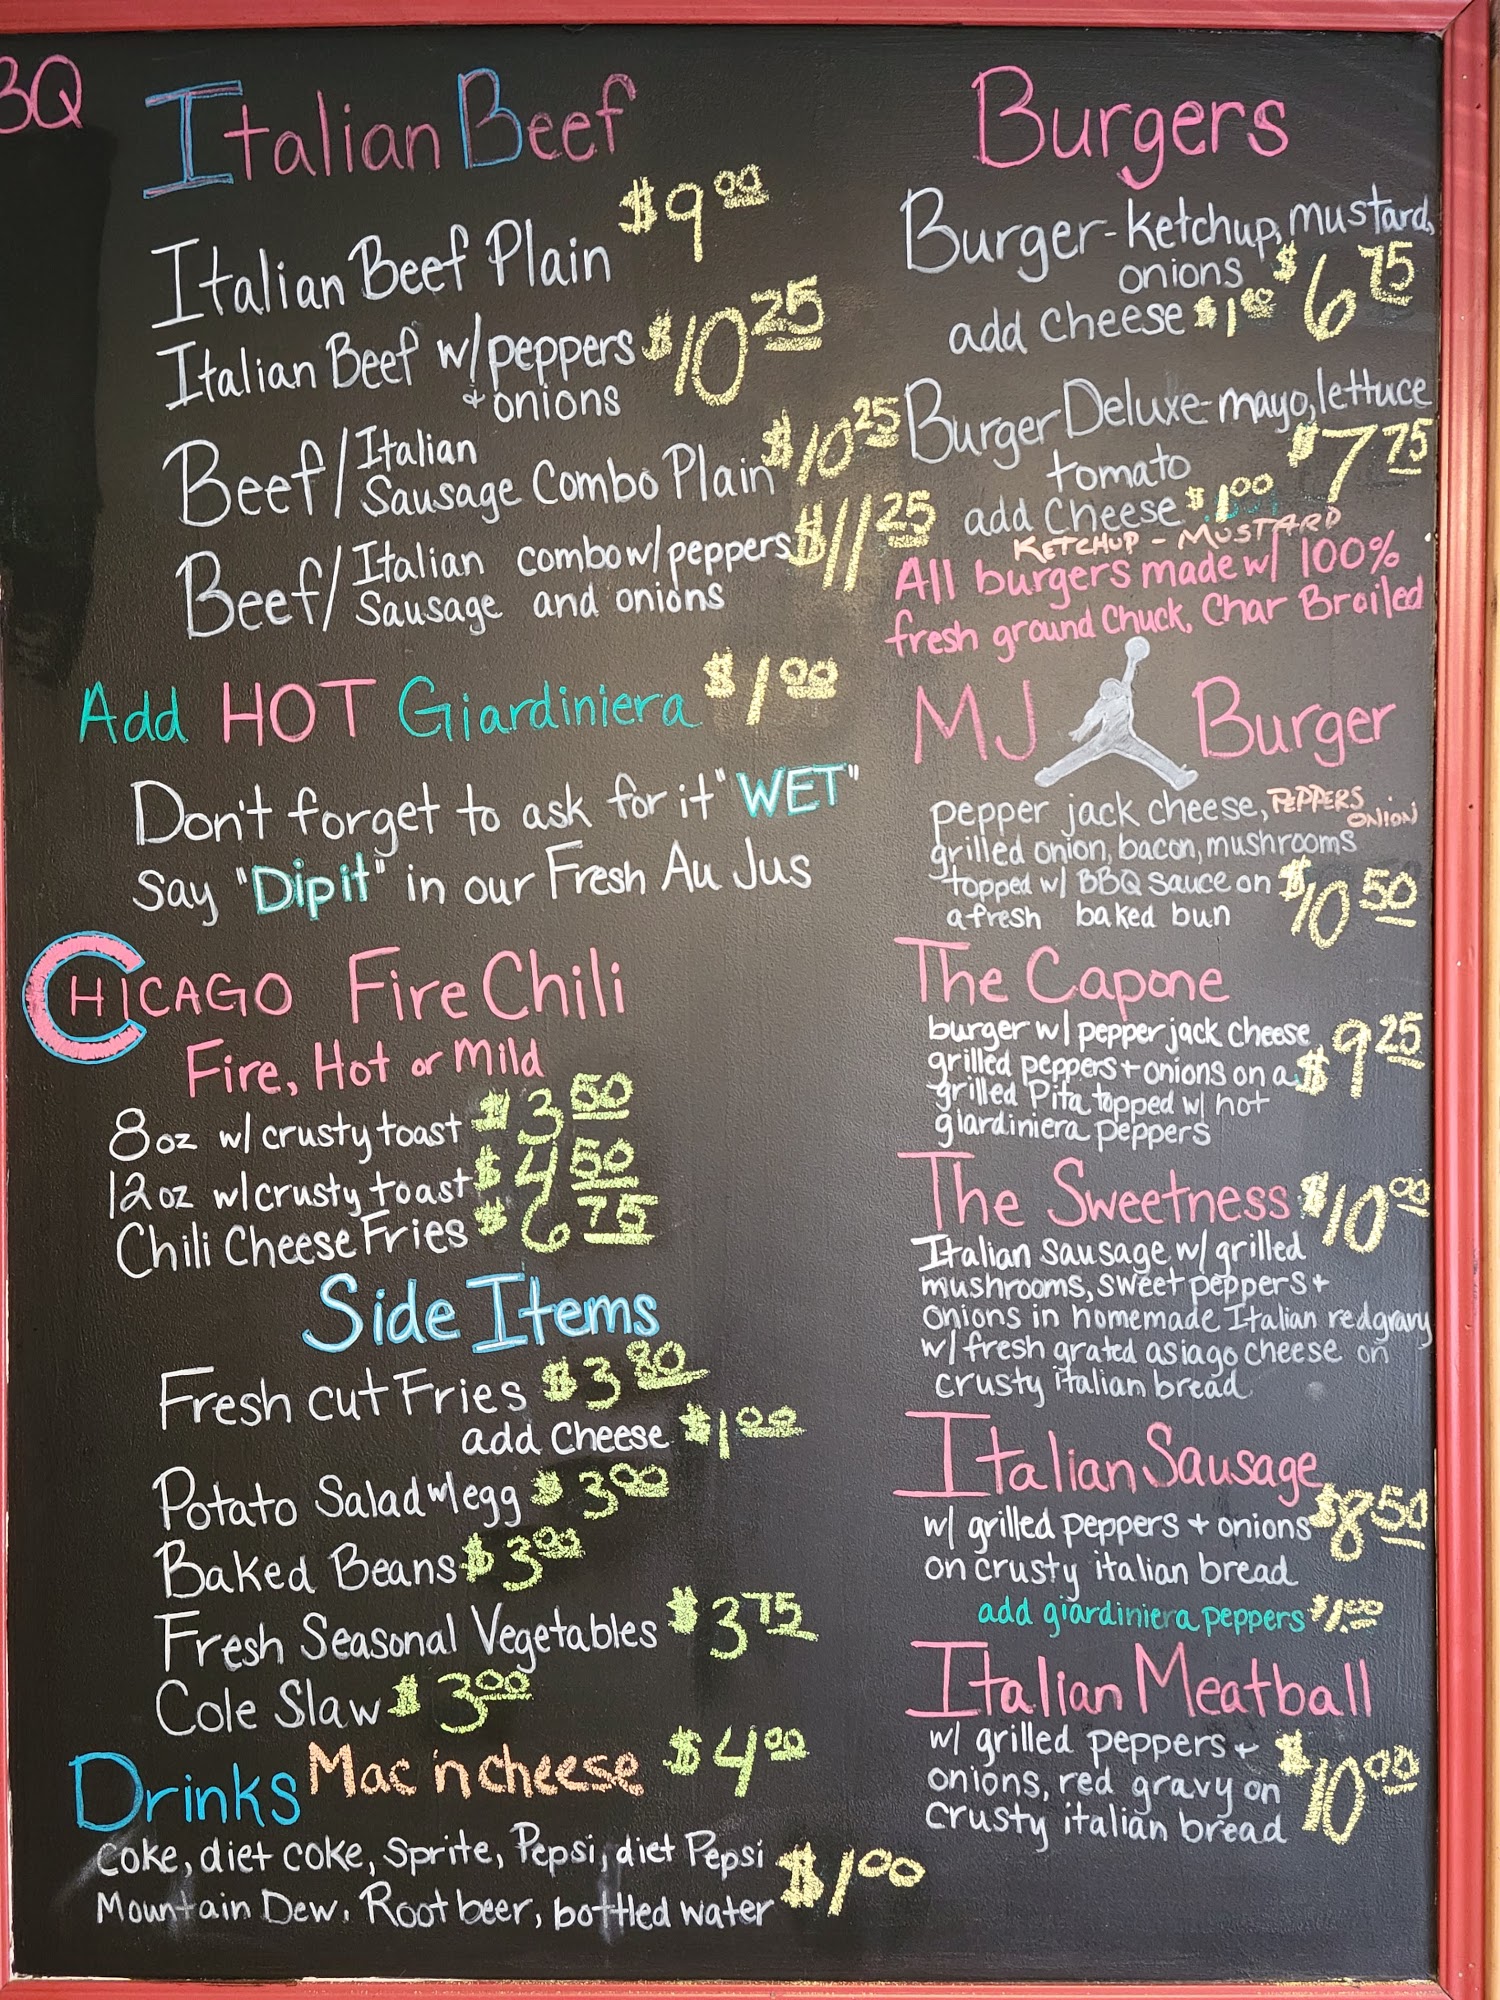 BQ
Italian Beef
Italian Beef Plain $9.00
Italian Beef w/peppers $10.25
+ onions
Beef/Italian Sausage Combo Plain $10.25
Beef/Italian Sausage combo w/peppers and onions $11.25
Add HOT Giardiniera $1.00
Don't forget to ask for it "WET"
say "Dip it" in our Fresh Au Jus
CHICAGO Fire Chili
Fire, Hot or Mild
8oz w/crusty toast $3.50
12oz w/crusty toast $4.50
Chili Cheese Fries $6.75
Side Items
Fresh cut Fries $3.80
add cheese $1.00
Potato Salad w/egg $3.00
Baked Beans $3.00
Fresh Seasonal Vegetables $3.75
Cole Slaw $3.00
Mac 'n cheese $4.00
Drinks
Coke, diet coke, Sprite, Pepsi, diet Pepsi
Mountain Dew, Root beer, bottled water $1.00
Burgers
Burger-ketchup, mustard,
onions $6.75
add cheese $1.00
Burger Deluxe-mayo, lettuce
tomato $7.75
add cheese $1.00
KETCHUP - MUSTARD
All burgers made w/ 100%
fresh ground Chuck, Char Broiled
MJ Burger
pepper jack cheese, PEPPERS ONION
grilled onion, bacon, mushrooms
topped w/ BBQ sauce on $10.50
a fresh baked bun
The Capone
burger w/ pepper jack cheese $9.25
grilled peppers + onions on a
grilled Pita topped w/ hot
giardiniera peppers
The Sweetness $10.00
Italian sausage w/ grilled
mushrooms, sweet peppers +
onions in homemade Italian red gravy
w/ fresh grated asiago cheese on
crusty italian bread
Italian Sausage
w/ grilled peppers + onions $8.50
on crusty italian bread
add giardiniera peppers $1.00
Italian Meatball
w/ grilled peppers +
onions, red gravy on $10.00
crusty italian bread